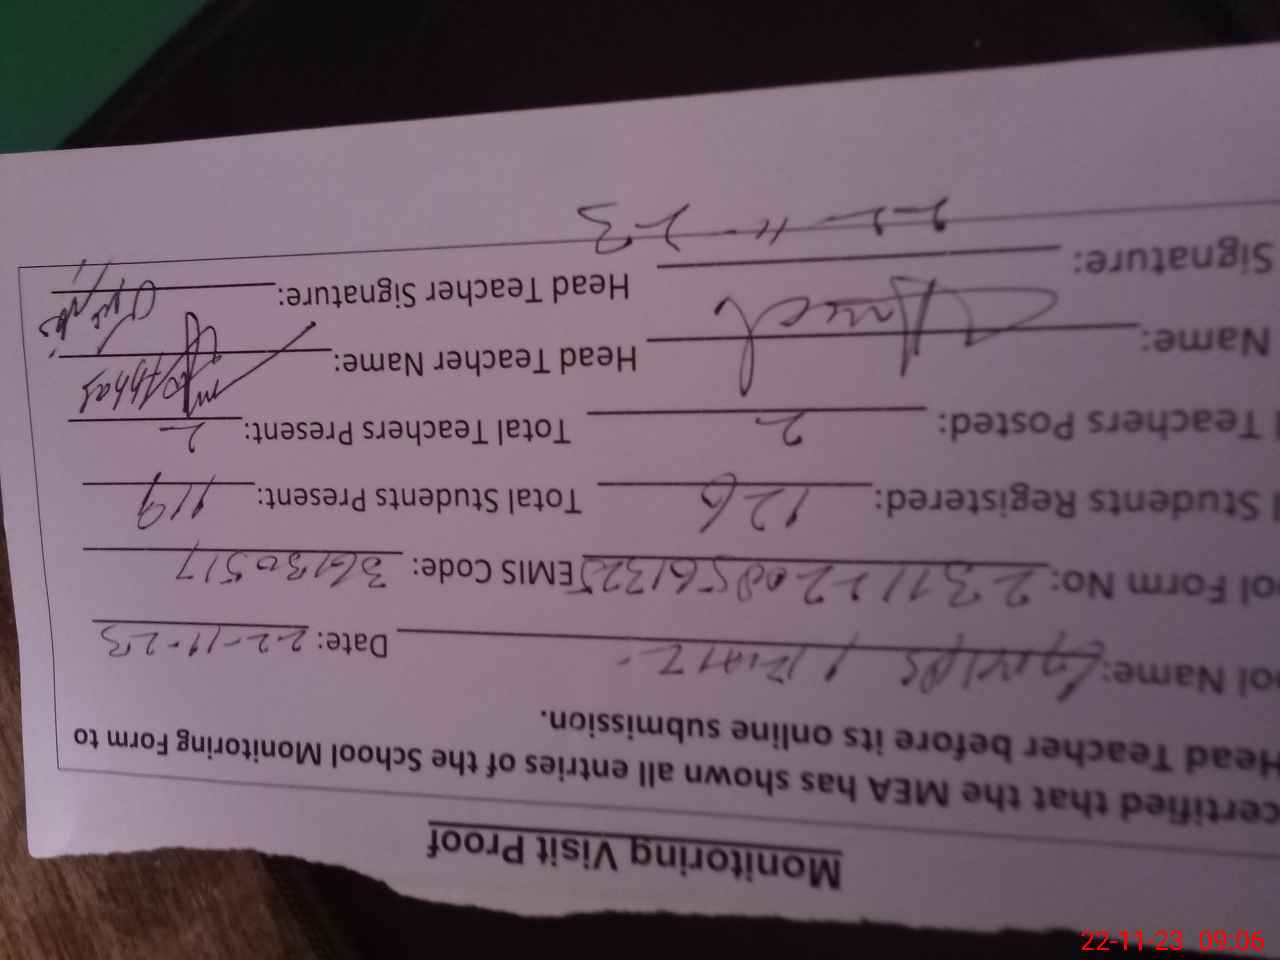 Monitoring Visit Proof
certified that the MEA has shown all entries of the School Monitoring Form to
Head Teacher before its online submission.
ol Name: Date: 22-11-23
ol Form No: EMIS Code: 36130517
Students Registered: 126 Total Students Present: 119
Teachers Posted: 2 Total Teachers Present: 2
Name: Head Teacher Name: Abbas
Signature: Head Teacher Signature:
22-11-23
22-11-23 09:06